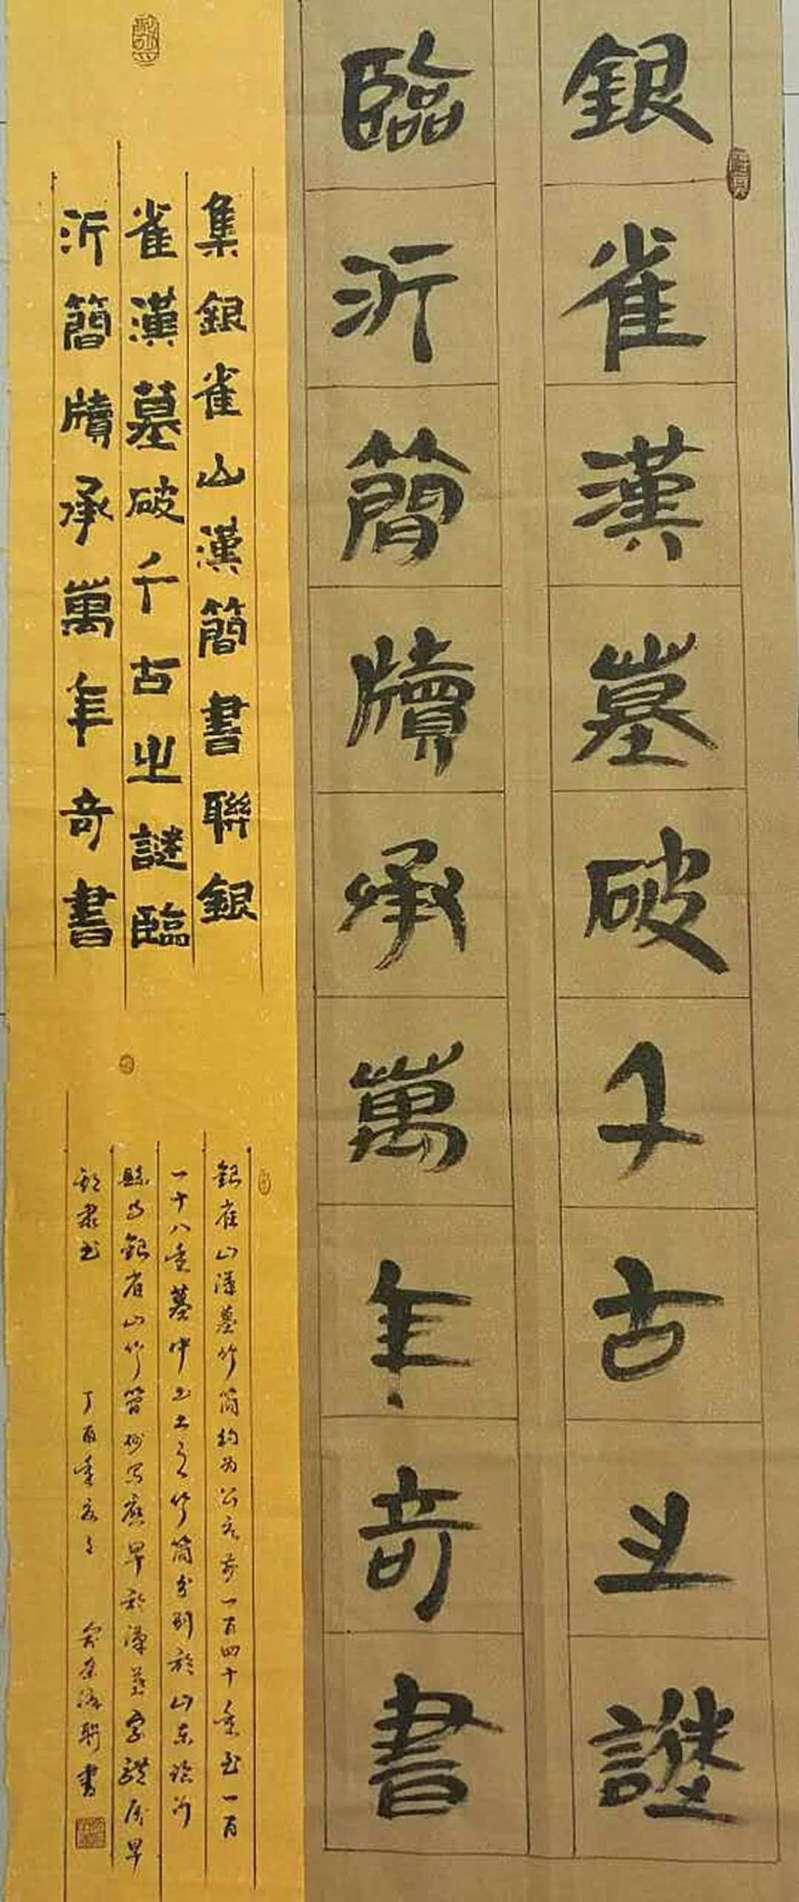 銀雀漢墓破千古之謎
臨沂簡牘承萬年奇書
集銀雀山漢簡書聯銀
雀漢墓破千古之謎臨
沂簡牘承萬年奇書
銀雀山漢墓竹簡約為公元前一百四十年至一百
一十八年墓中出土之竹簡分別於山東臨沂
銀雀山竹簡抄寫應早於漢墓字體屬早
丁酉年
書